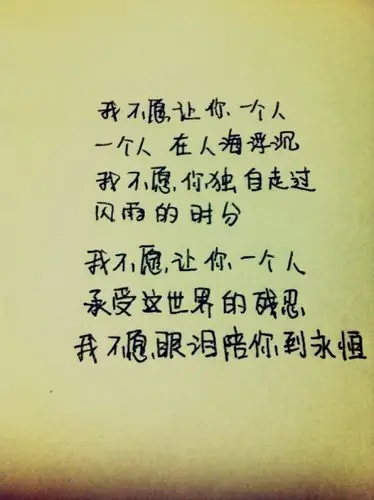 我不愿让你一个人
一个人在人海浮沉
我不愿你独自走过
风雨的时分
我不愿让你一个人
承受这世界的残忍
我不愿眼泪陪你到永恒